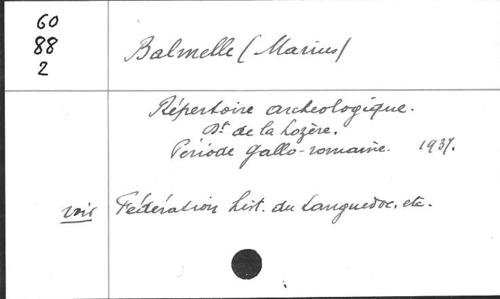 60
88
2
Balmelle (Marius)
Répertoire archéologique.
Dt de la Lozère.
Période gallo-romaine. 1937.
voir Fédération hist. du Languedoc, etc.